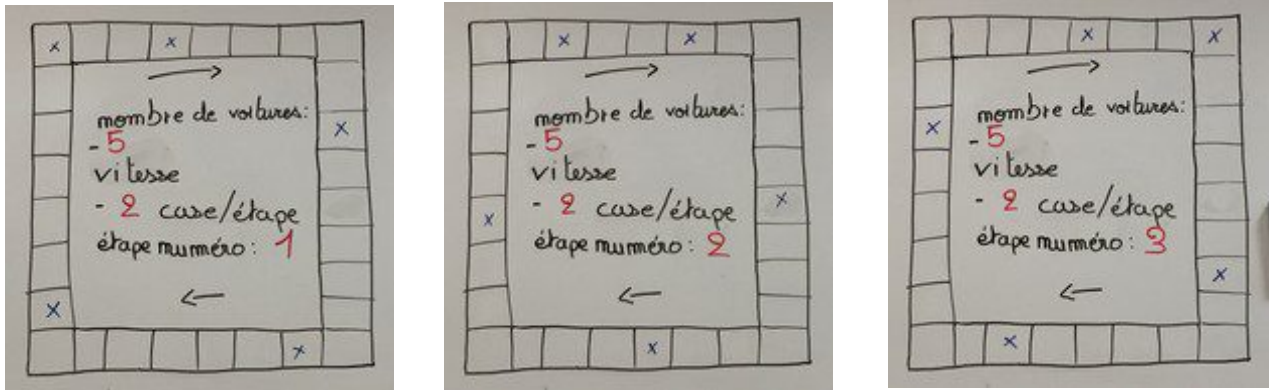 nombre de voitures:
- 5
vitesse
- 2 case/étape
étape numéro: 1
nombre de voitures:
- 5
vitesse
- 2 case/étape
étape numéro: 2
nombre de voitures:
- 5
vitesse
- 2 case/étape
étape numéro: 3